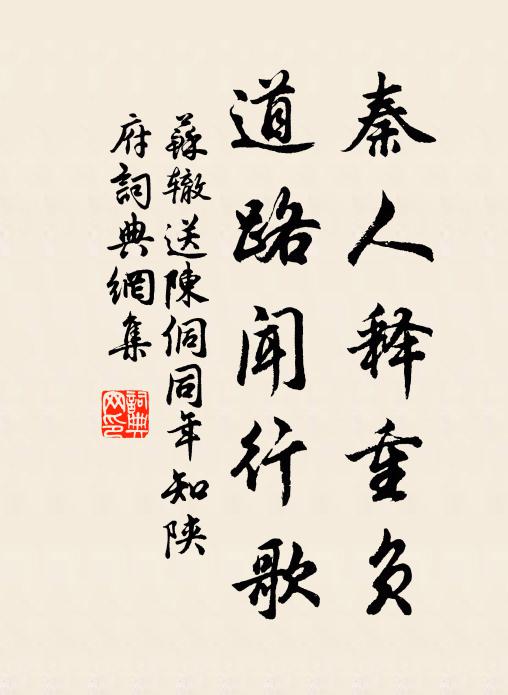 秦人释重负
道路闻行歌
蘇辙送陳侗同年知陕
府詞典網集
詞典
网印